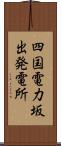 四国電力坂
出発電所